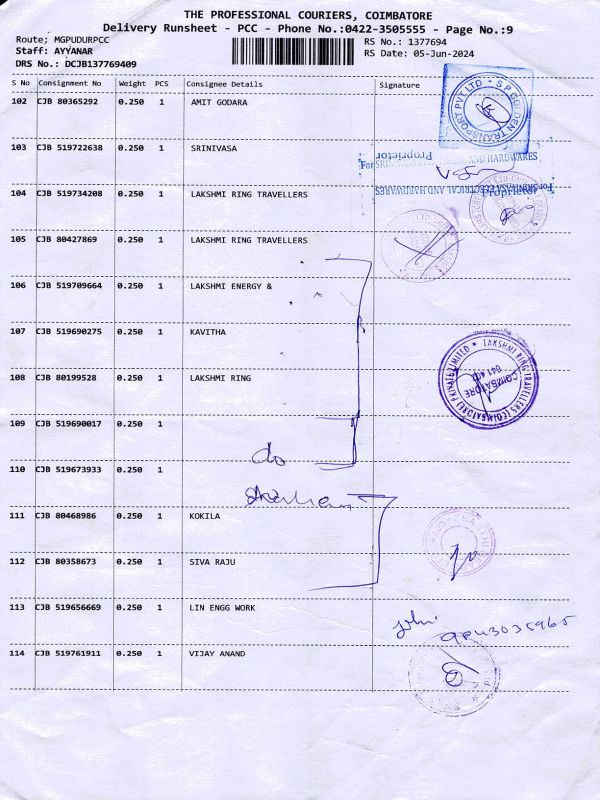 THE PROFESSIONAL COURIERS, COIMBATORE
Delivery Runsheet - PCC - Phone No.:0422-3505555 - Page No.:9
Route; MGPUDURPCC
RS No.: 1377694
Staff: AYYANAR
RS Date: 05-Jun-2024
DRS No.: DCJB137769409
S No Consignment No Weight PCS Consignee Details Signature
102 CJB 80365292 0.250 1 AMIT GODARA
S P GOLDEN TRANSPORT PVT LTD
103 CJB 519722638 0.250 1 SRINIVASA
Proprietor
AND HARDWARES
104 CJB 519734208 0.250 1 LAKSHMI RING TRAVELLERS
ELECTRICAL AND HARDWARES
Proprietor
105 CJB 80427869 0.250 1 LAKSHMI RING TRAVELLERS
106 CJB 519709664 0.250 1 LAKSHMI ENERGY &
107 CJB 519690275 0.250 1 KAVITHA
108 CJB 80199528 0.250 1 LAKSHMI RING
LAKSHMI RING TRAVELLERS (COIMBATORE) PRIVATE LIMITED
COIMBATORE
109 CJB 519690017 0.250 1
do
110 CJB 519673933 0.250 1
111 CJB 80468986 0.250 1 KOKILA
112 CJB 80358673 0.250 1 SIVA RAJU
113 CJB 519656669 0.250 1 LIN ENGG WORK
114 CJB 519761911 0.250 1 VIJAY ANAND